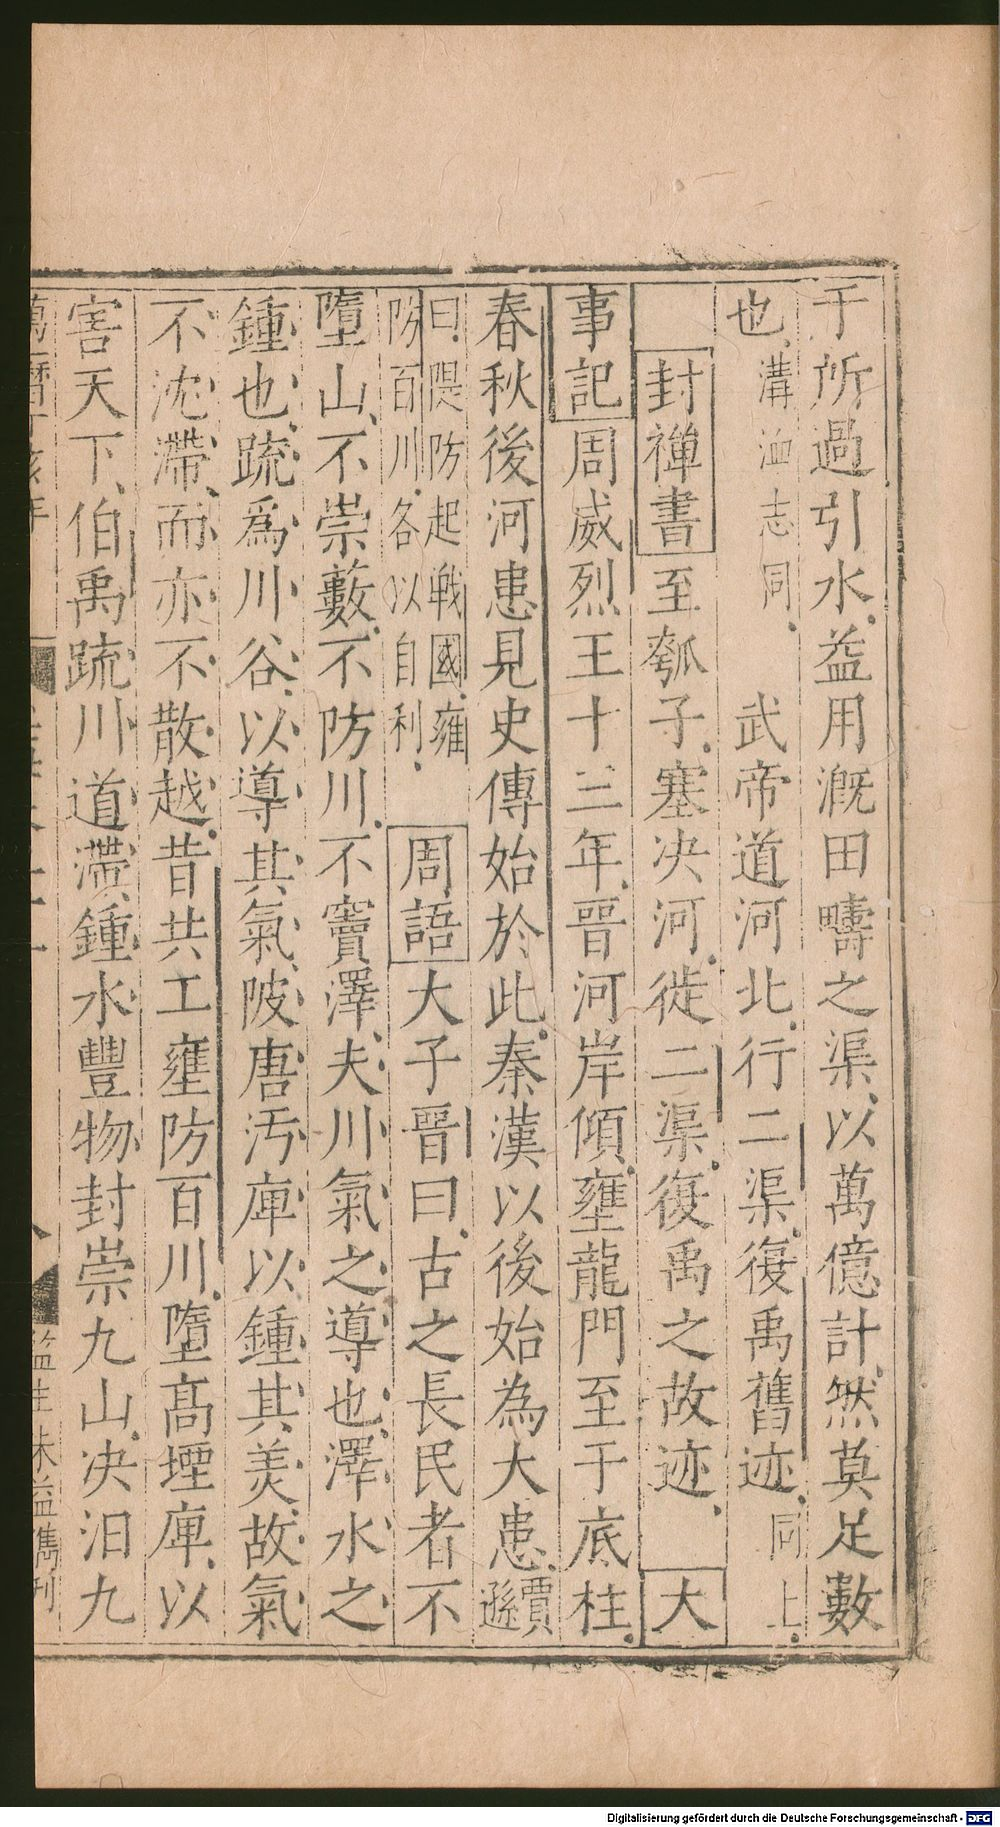 于所過引水益用溉田疇之渠以萬億計然莫足數
也溝洫志同 武帝道河北行二渠復禹舊迹同上
封禪書至瓠子塞决河徙二渠復禹之故迹 大
事記周威烈王十三年晋河岸傾壅龍門至于底柱
春秋後河患見史傳始於此秦漢以後始為大患賈遜
曰隄防起戰國雍
防百川各以自利
周語大子晋曰古之長民者不
墮山不崇藪不防川不竇澤夫川氣之導也澤水之
鍾也疏爲川谷以導其氣陂唐汚庳以鍾其美故氣
不沈滯而亦不散越昔共工壅防百川墮高堙庳以
害天下伯禹疏川道滯鍾水豐物封崇九山决汩九
萬曆丁亥年
監生朱益儁刊
Digitalisierung gefördert durch die Deutsche Forschungsgemeinschaft - DFG